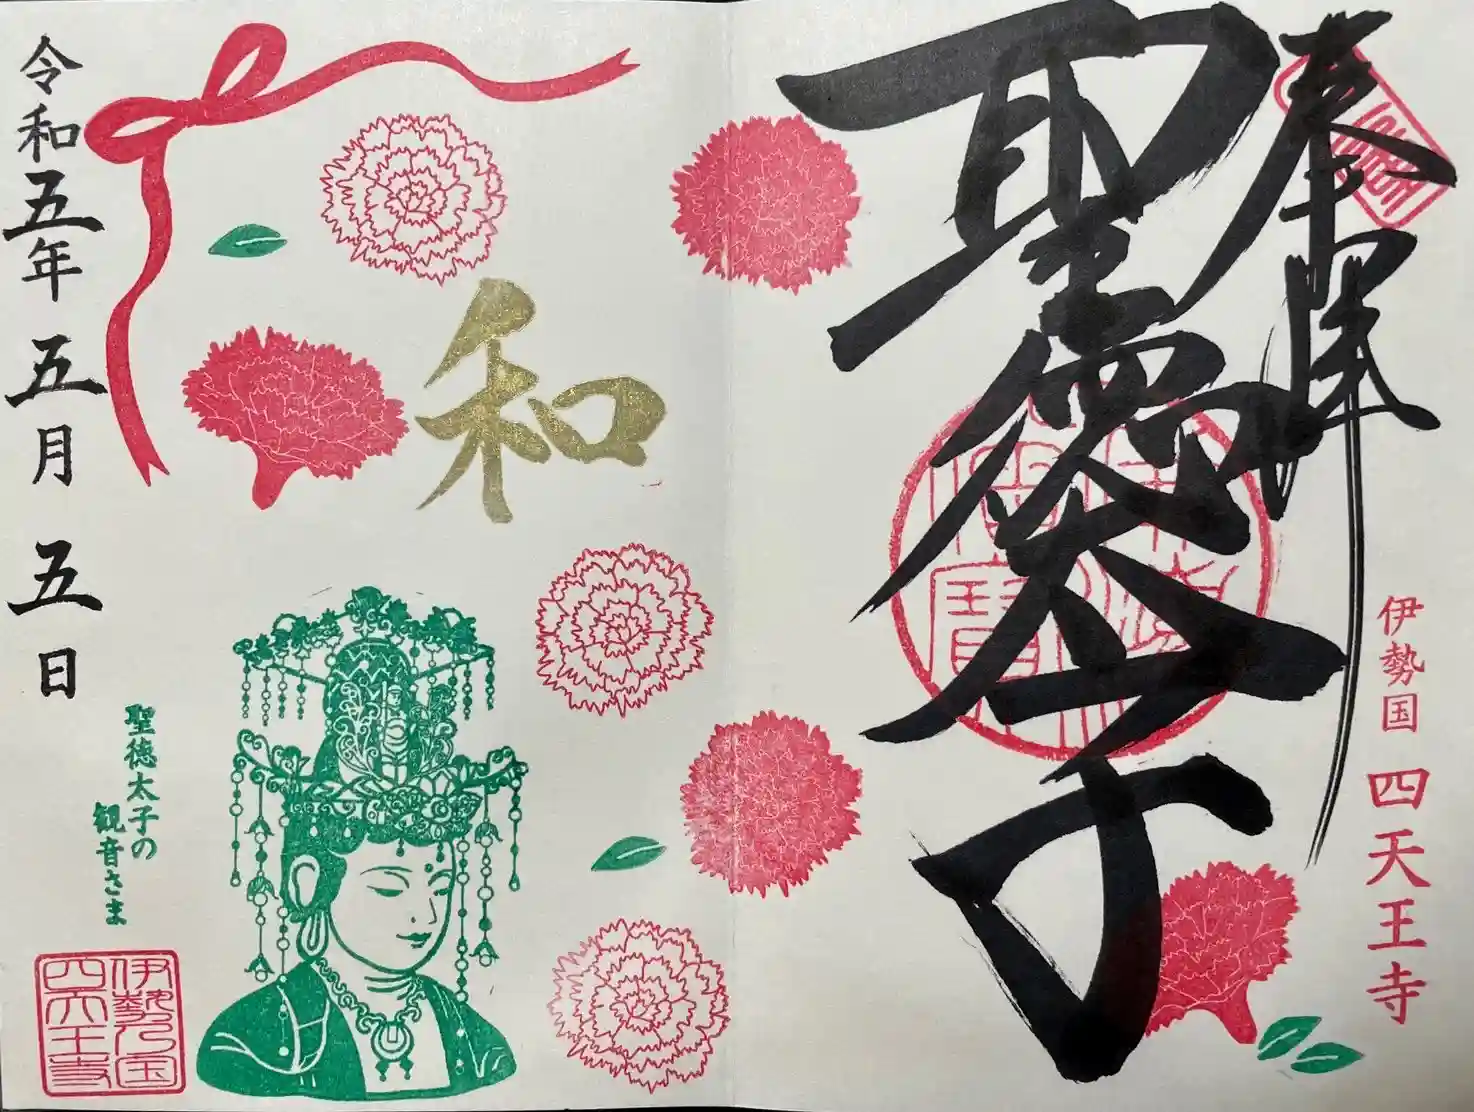 奉拝
聖徳太子
伊勢国 四天王寺
和
令和五年 五月 五日
聖徳太子の
観音さま
伊勢乃国
四天王寺